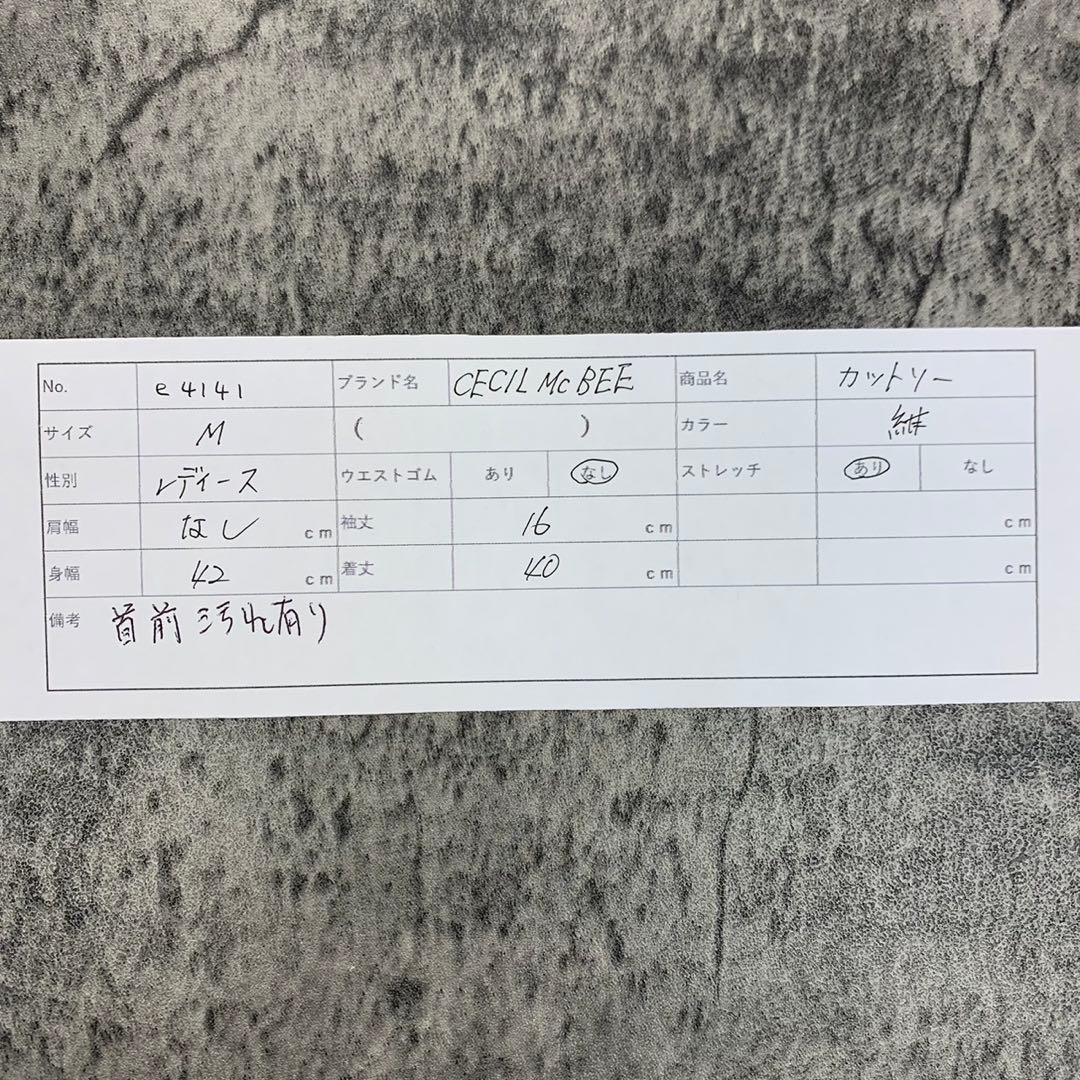 No. e4141 ブランド名 CECIL Mc BEE 商品名 カットソー
サイズ M ( ) カラー
性別 レディース ウエストゴム あり なし ストレッチ あり なし
肩幅 なし cm 袖丈 16 cm cm
身幅 42 cm 着丈 40 cm cm
備考 首前汚れ有り